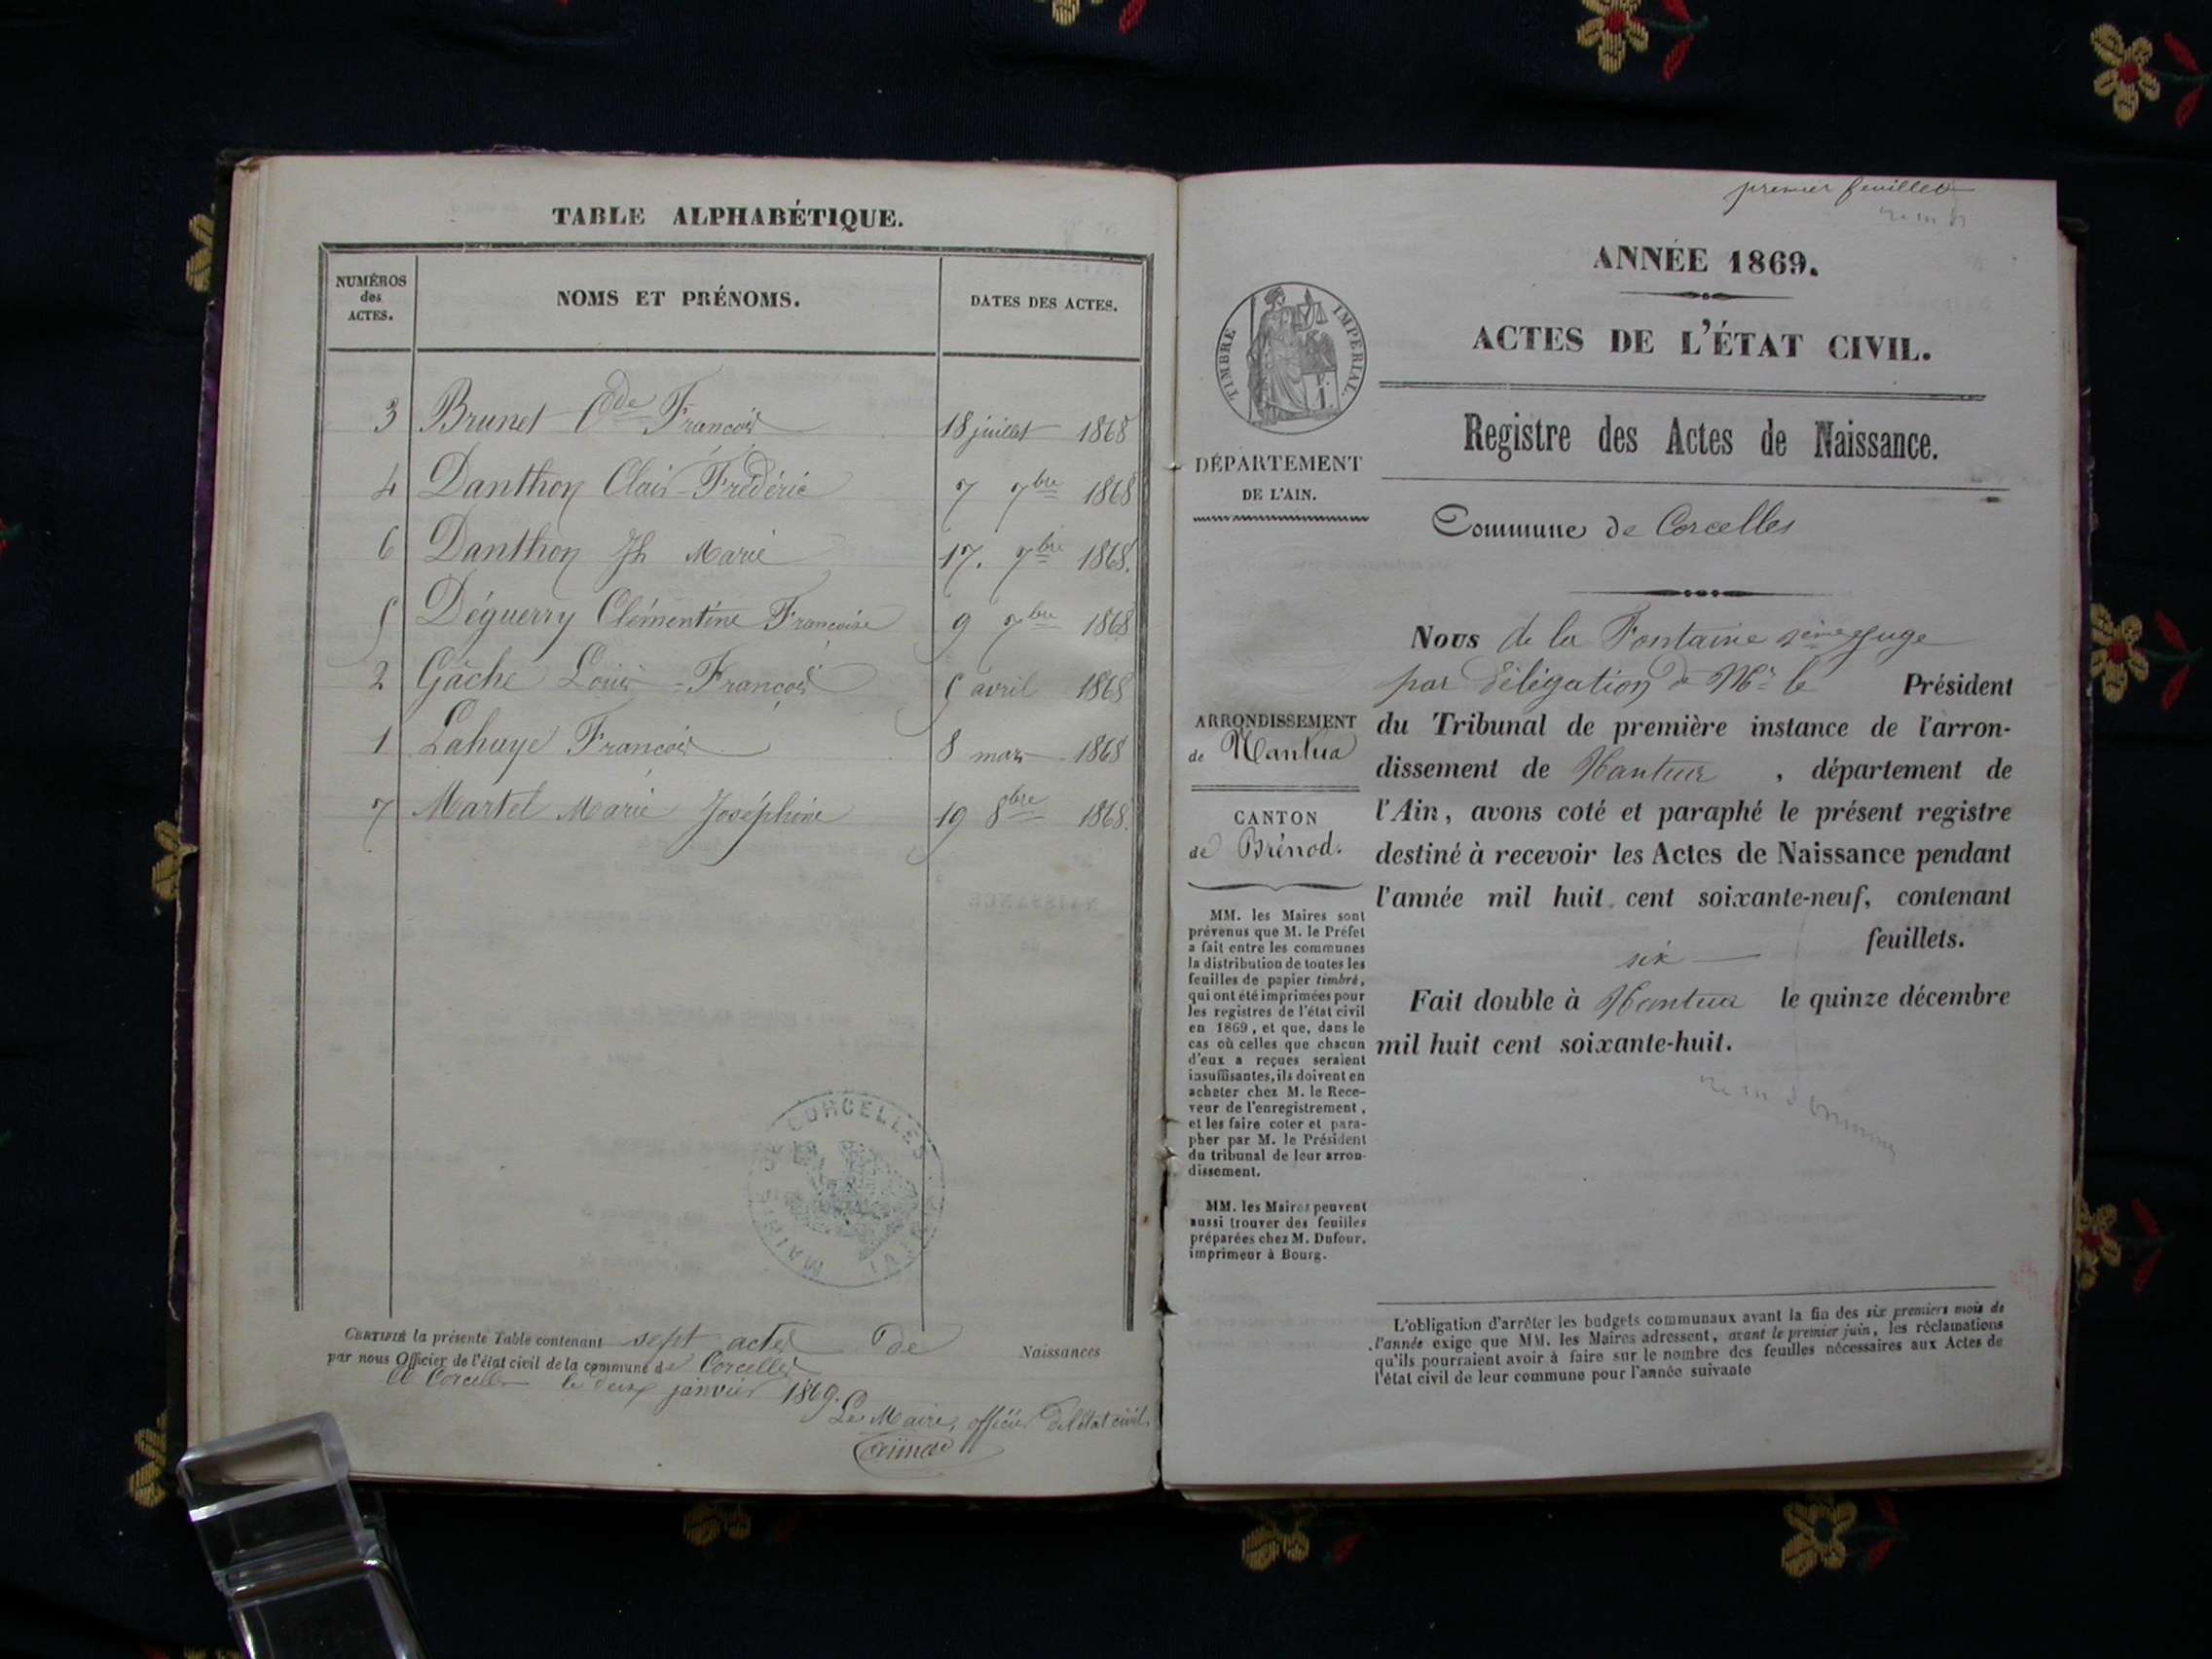 TABLE ALPHABÉTIQUE.
NUMÉROS des ACTES.
NOMS ET PRÉNOMS.
DATES DES ACTES.
3 Brunet Cde François 18 juillet 1868
4 Danthon Clair-Frédéric 7 7bre 1868
6 Danthon Jh Marie 17. 7bre 1868.
5 Déguerry Clémentine Françoise 9 7bre 1868
2 Gâche Louis-François 5 avril 1868
1 Lahaye François 8 mars 1868
7 Martel Marie Joséphine 19 8bre 1868.
MAIRIE DE CORCELLES
CERTIFIÉ la présente Table contenant sept actes de Naissances
par nous Officier de l'état civil de la commune de Corcelles
A Corcelles le deux janvier 1869.
Le Maire, officier de l'état civil
premier feuillet
ANNÉE 1869.
ACTES DE L'ÉTAT CIVIL.
TIMBRE IMPÉRIAL.
Registre des Actes de Naissance.
DÉPARTEMENT
DE L'AIN.
Commune de Corcelles
Nous de la Fontaine Juge
par délégation de Mr le Président
du Tribunal de première instance de l'arron-
dissement de Nantua, département de
l'Ain, avons coté et paraphé le présent registre
destiné à recevoir les Actes de Naissance pendant
l'année mil huit cent soixante-neuf, contenant
six feuillets.
Fait double à Nantua le quinze décembre
mil huit cent soixante-huit.
ARRONDISSEMENT
de Nantua
CANTON
de Brénod.
MM. les Maires sont
prévenus que M. le Préfet
a fait entre les communes
la distribution de toutes les
feuilles de papier timbré,
qui ont été imprimées pour
les registres de l'état civil
en 1869, et que, dans le
cas où celles que chacun
d'eux a reçues seraient
insuffisantes, ils doivent en
acheter chez M. le Rece-
veur de l'enregistrement,
et les faire coter et para-
pher par M. le Président
du tribunal de leur arron-
dissement.
MM. les Maires peuvent
aussi trouver des feuilles
préparées chez M. Dufour,
imprimeur à Bourg.
L'obligation d'arrêter les budgets communaux avant la fin des six premiers mois de
l'année exige que MM. les Maires adressent, avant le premier juin, les réclamations
qu'ils pourraient avoir à faire sur le nombre des feuilles nécessaires aux Actes de
l'état civil de leur commune pour l'année suivante